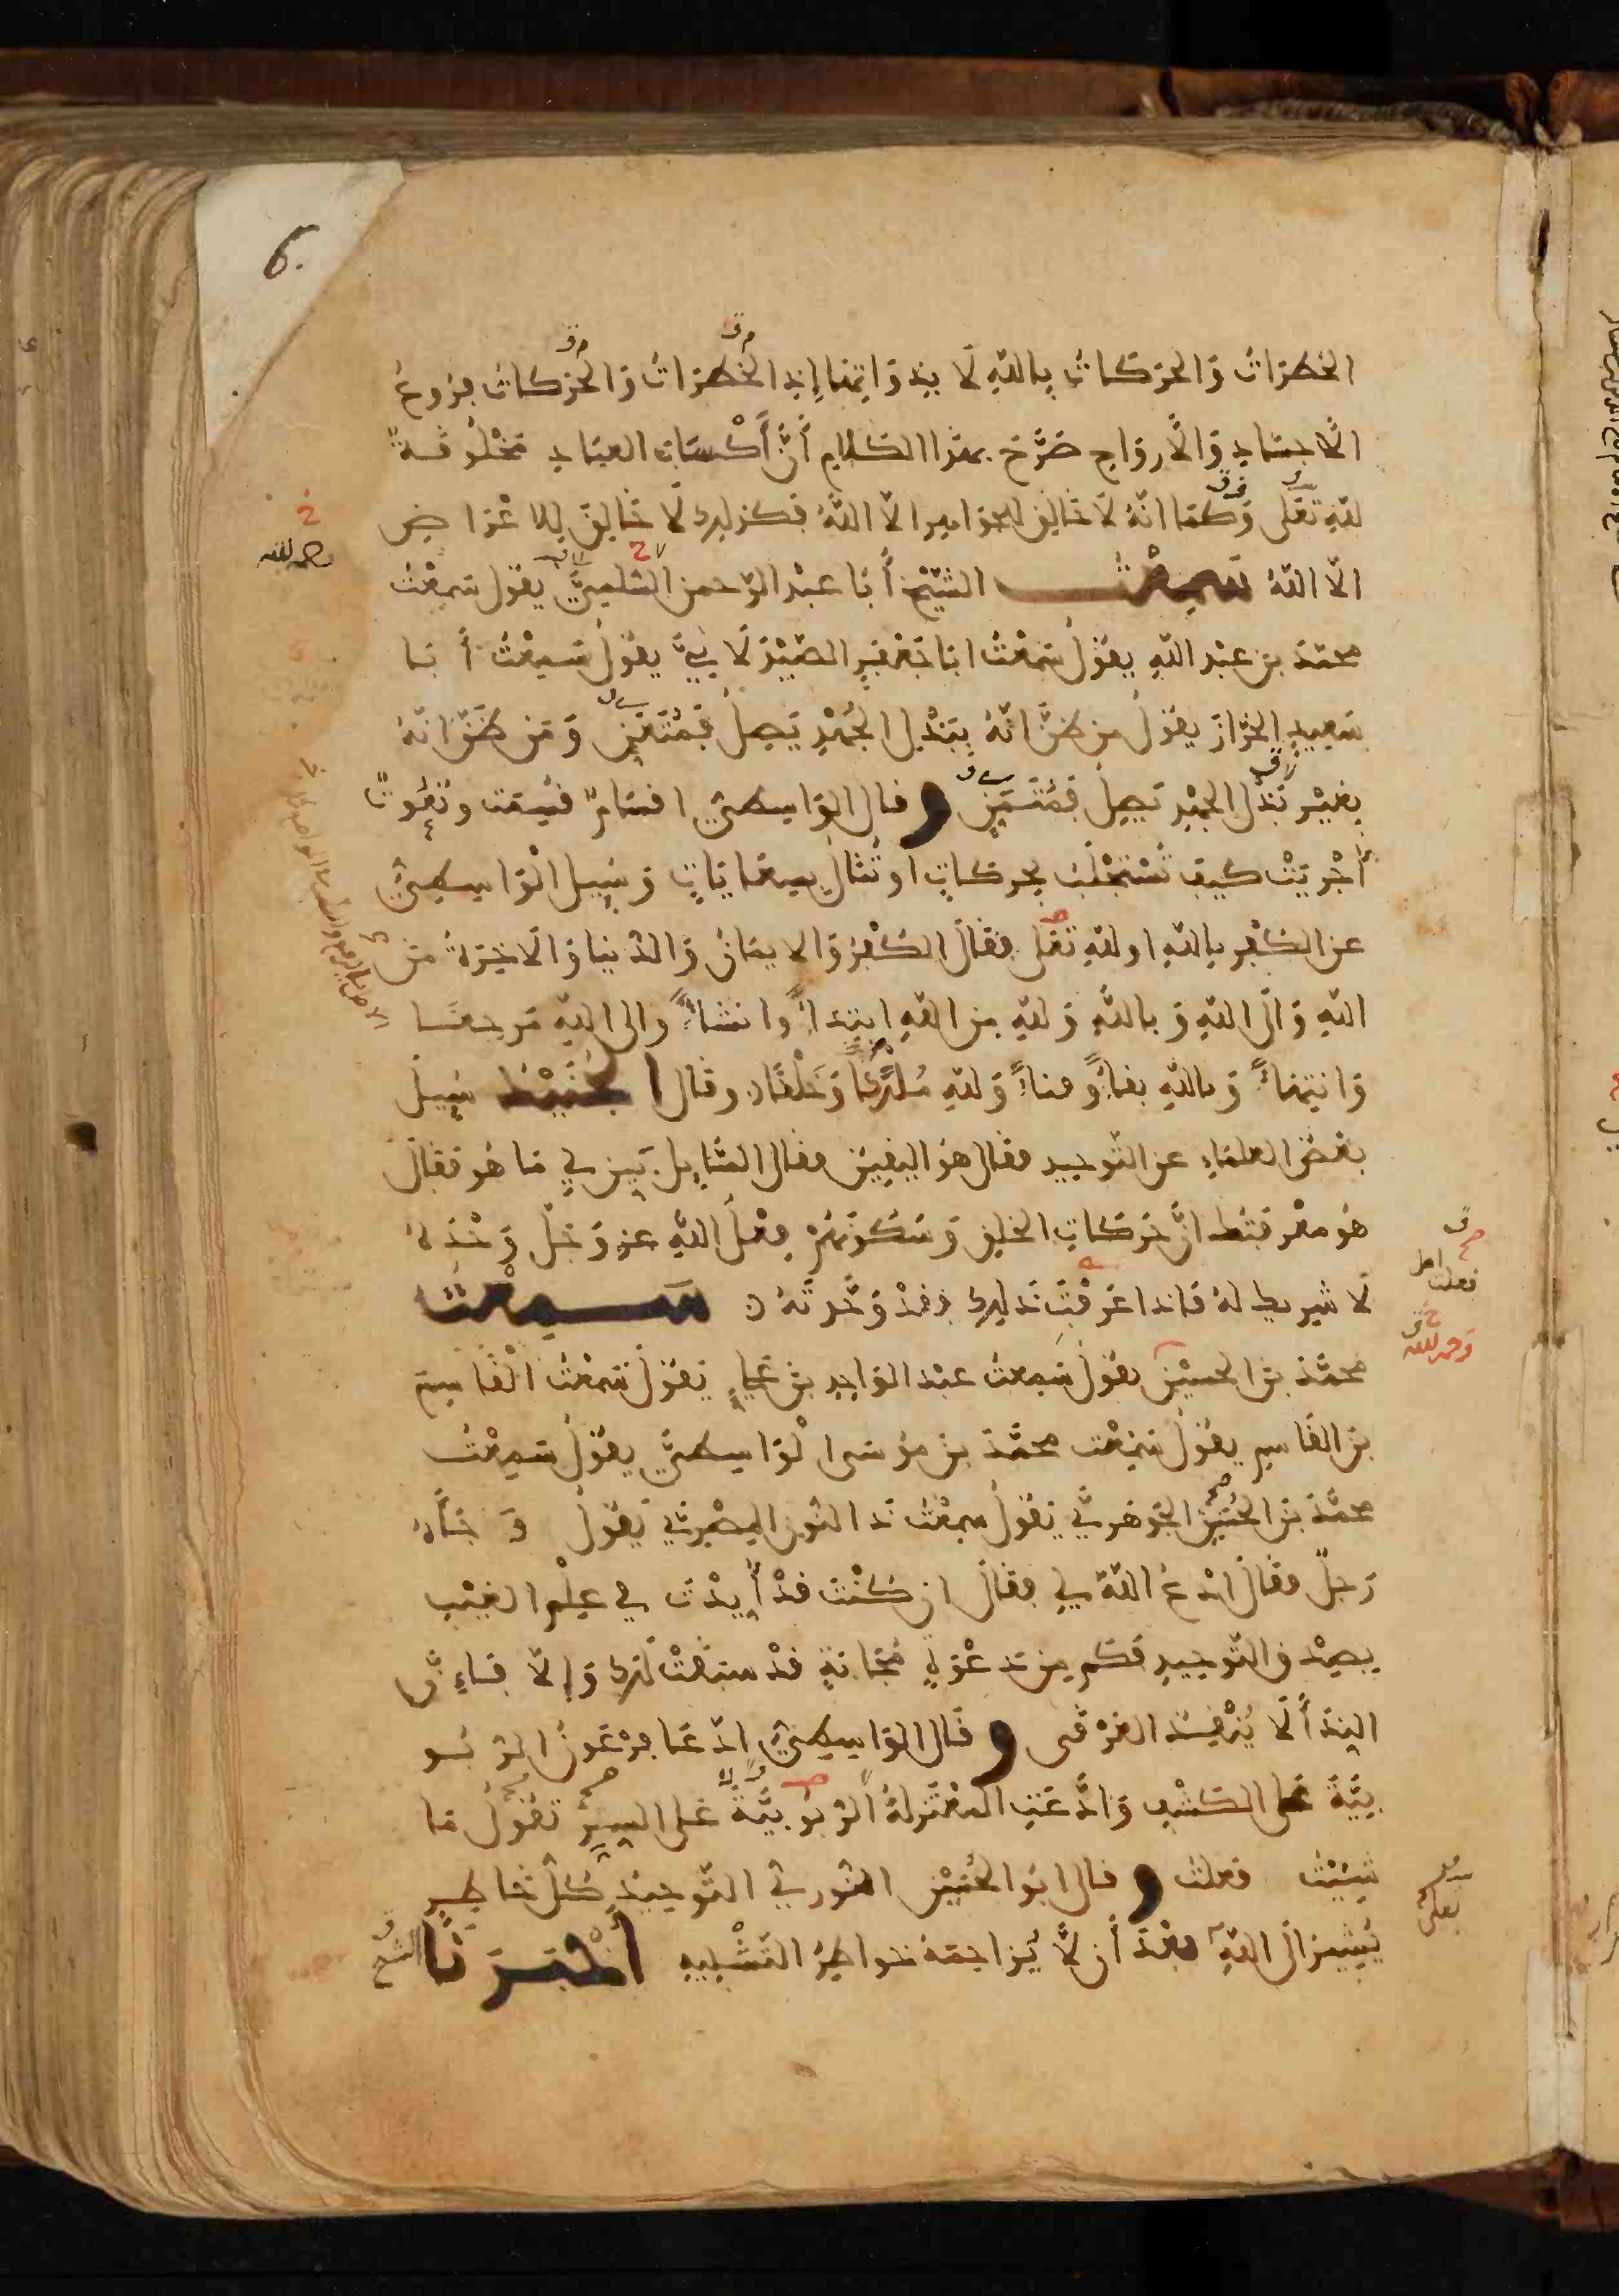 6.
الخطرات والحركات بالله لا بذواتها إذ الخطرات والحركات فروع
الأجساد والأرواح صرح بهذا الكلام أن أكساب العباد مخلوقة
لله تعلى وكما انه لا خالق للجواهر الا الله فكذلك لا خالق للاعراض
الا الله سمعت الشيخ أبا عبد الرحمن السلمي يقول سمعت
محمد بن عبد الله يقول سمعت ابا جعفر الصيدلاني يقول سمعت أبا
سعيد الخراز يقول من ظن انه ببذل الجهد يصل فمتعن ومن ظن انه
بغير بذل الجهد يصل فمتمن وقال الواسطي اقسام قسمت ونعوت
أجريت كيف تستجلب بحركات او تنال بسعايات وسيل الواسطي
عن الكفر بالله او لله تعلى فقال الكفر والايمان والدنيا والاخرة من
الله والى الله وبالله ولله من الله ابتداء وانشاء والى الله مرجعا
وانتهاء وبالله بقاء وفناء ولله ملكا وخلقا وقال الجنيد سيل
بعض العلماء عن التوحيد فقال هو اليقين فقال السايل بين لي ما هو فقال
هو معرفتك ان حركات الخلق وسكونهم فعل الله عز وجل وحده
لا شريك له فاذا عرفت ذلك فقد وحدته سمعت
محمد بن الحسين يقول سمعت عبد الواحد بن علي يقول سمعت القاسم
بن القاسم يقول سمعت محمد بن موسى الواسطي يقول سمعت
محمد بن الحسين الجوهري يقول سمعت ذا النون المصري يقول وجاءه
رجل فقال ادع الله لي فقال ان كنت قد أيدت في علم الغيب
بصدق التوحيد فكم من دعوة مجابة قد سبقت لك وإلا فإن
الندا لا ينقذ الغرقى وقال الواسطي ادعا فرعون الربو
بية على الكشف وادعت المعتزلة الربوبية على الستر تقول ما
شيت فعلت وقال ابو الحسين النوري التوحيد كل خاطر
يشير الى الله بعد أن لا يزاحمه خواطر التشبيه أخبرنا الشيخ
رحمه الله
فعلت
رحمه الله